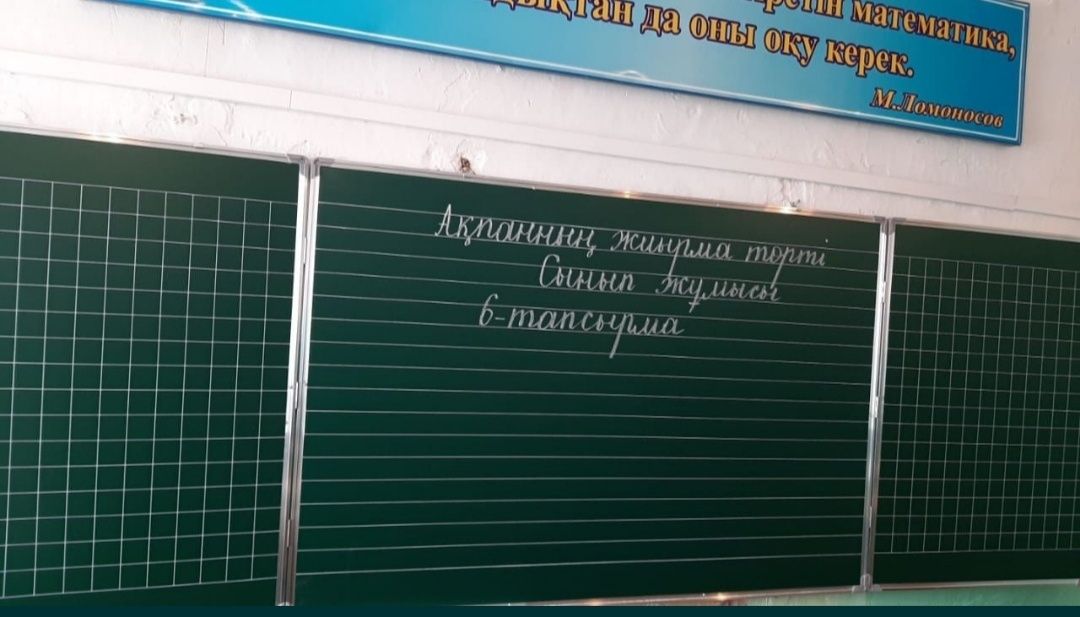 математика,
да оны оқу керек.
М.Ломоносов
Ақпанның жиырма төрті
Сынып жұмысы
6-тапсырма